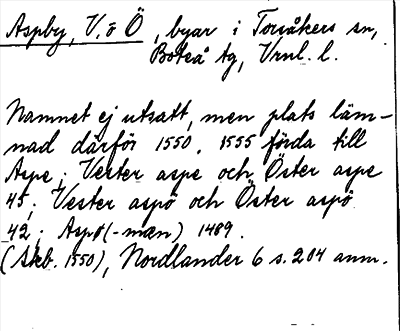 Aspby, V. o Ö, byar i Torsåkers sn,
Boteå tg, Vrnl. l.
Namnet ej utsatt, men plats läm-
nad därför 1550. 1555 förda till
Aspe; Vester aspe och Öster aspe
45; Vester aspö och Öster aspö
42; Aspø (-mæn) 1489.
(Skb. 1550), Nordlander 6 s. 204 anm.